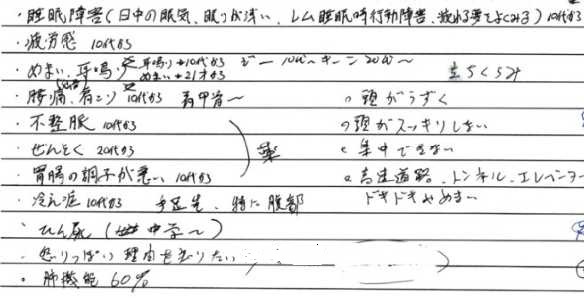 ・睡眠障害(日中の眠気、眠りが浅い、レム睡眠時行動障害、疲れる夢をよくみる)10代から
・疲労感 10代から
・めまい、耳鳴り 耳鳴り→10代から めまい→21才から ジー10代〜キーン20代〜 立ちくらみ
・腰痛、肩こり 10代から 肩甲骨〜
○頭がうずく
・不整脈 10代から
○頭がスッキリしない
・ぜんそく 20代から
集中できない
薬
・胃腸の調子が悪い 10代から
高速道路、トンネル、エレベーター
ドキドキやめまい
・冷え症 10代から 手足先、特に腹部
・ひん尿(中学〜)
・怒りっぽい 理由を
・肺機能 60%